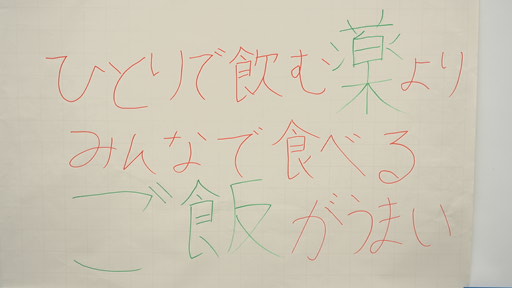 ひとりで飲む薬より
みんなで食べる
ご飯がうまい